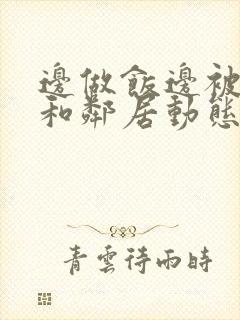 邊做飯邊被
和鄰居動態
青雲待雨時